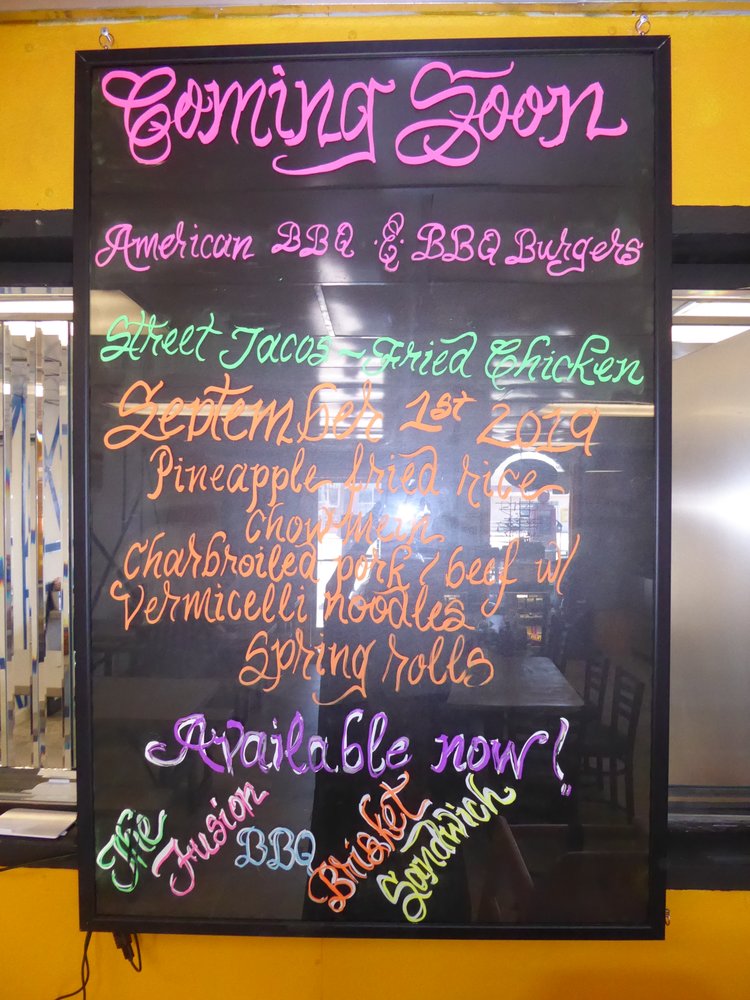 Coming Soon
American BBQ & BBQ Burgers
Street Tacos ~ Fried Chicken
September 1st 2019
Pineapple fried rice
Chow mein
Charbroiled pork / beef w/
Vermicelli noodles
Spring rolls
Available now!
The Fusion BBQ Brisket Sandwich